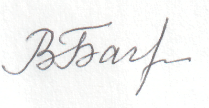 ВБаг